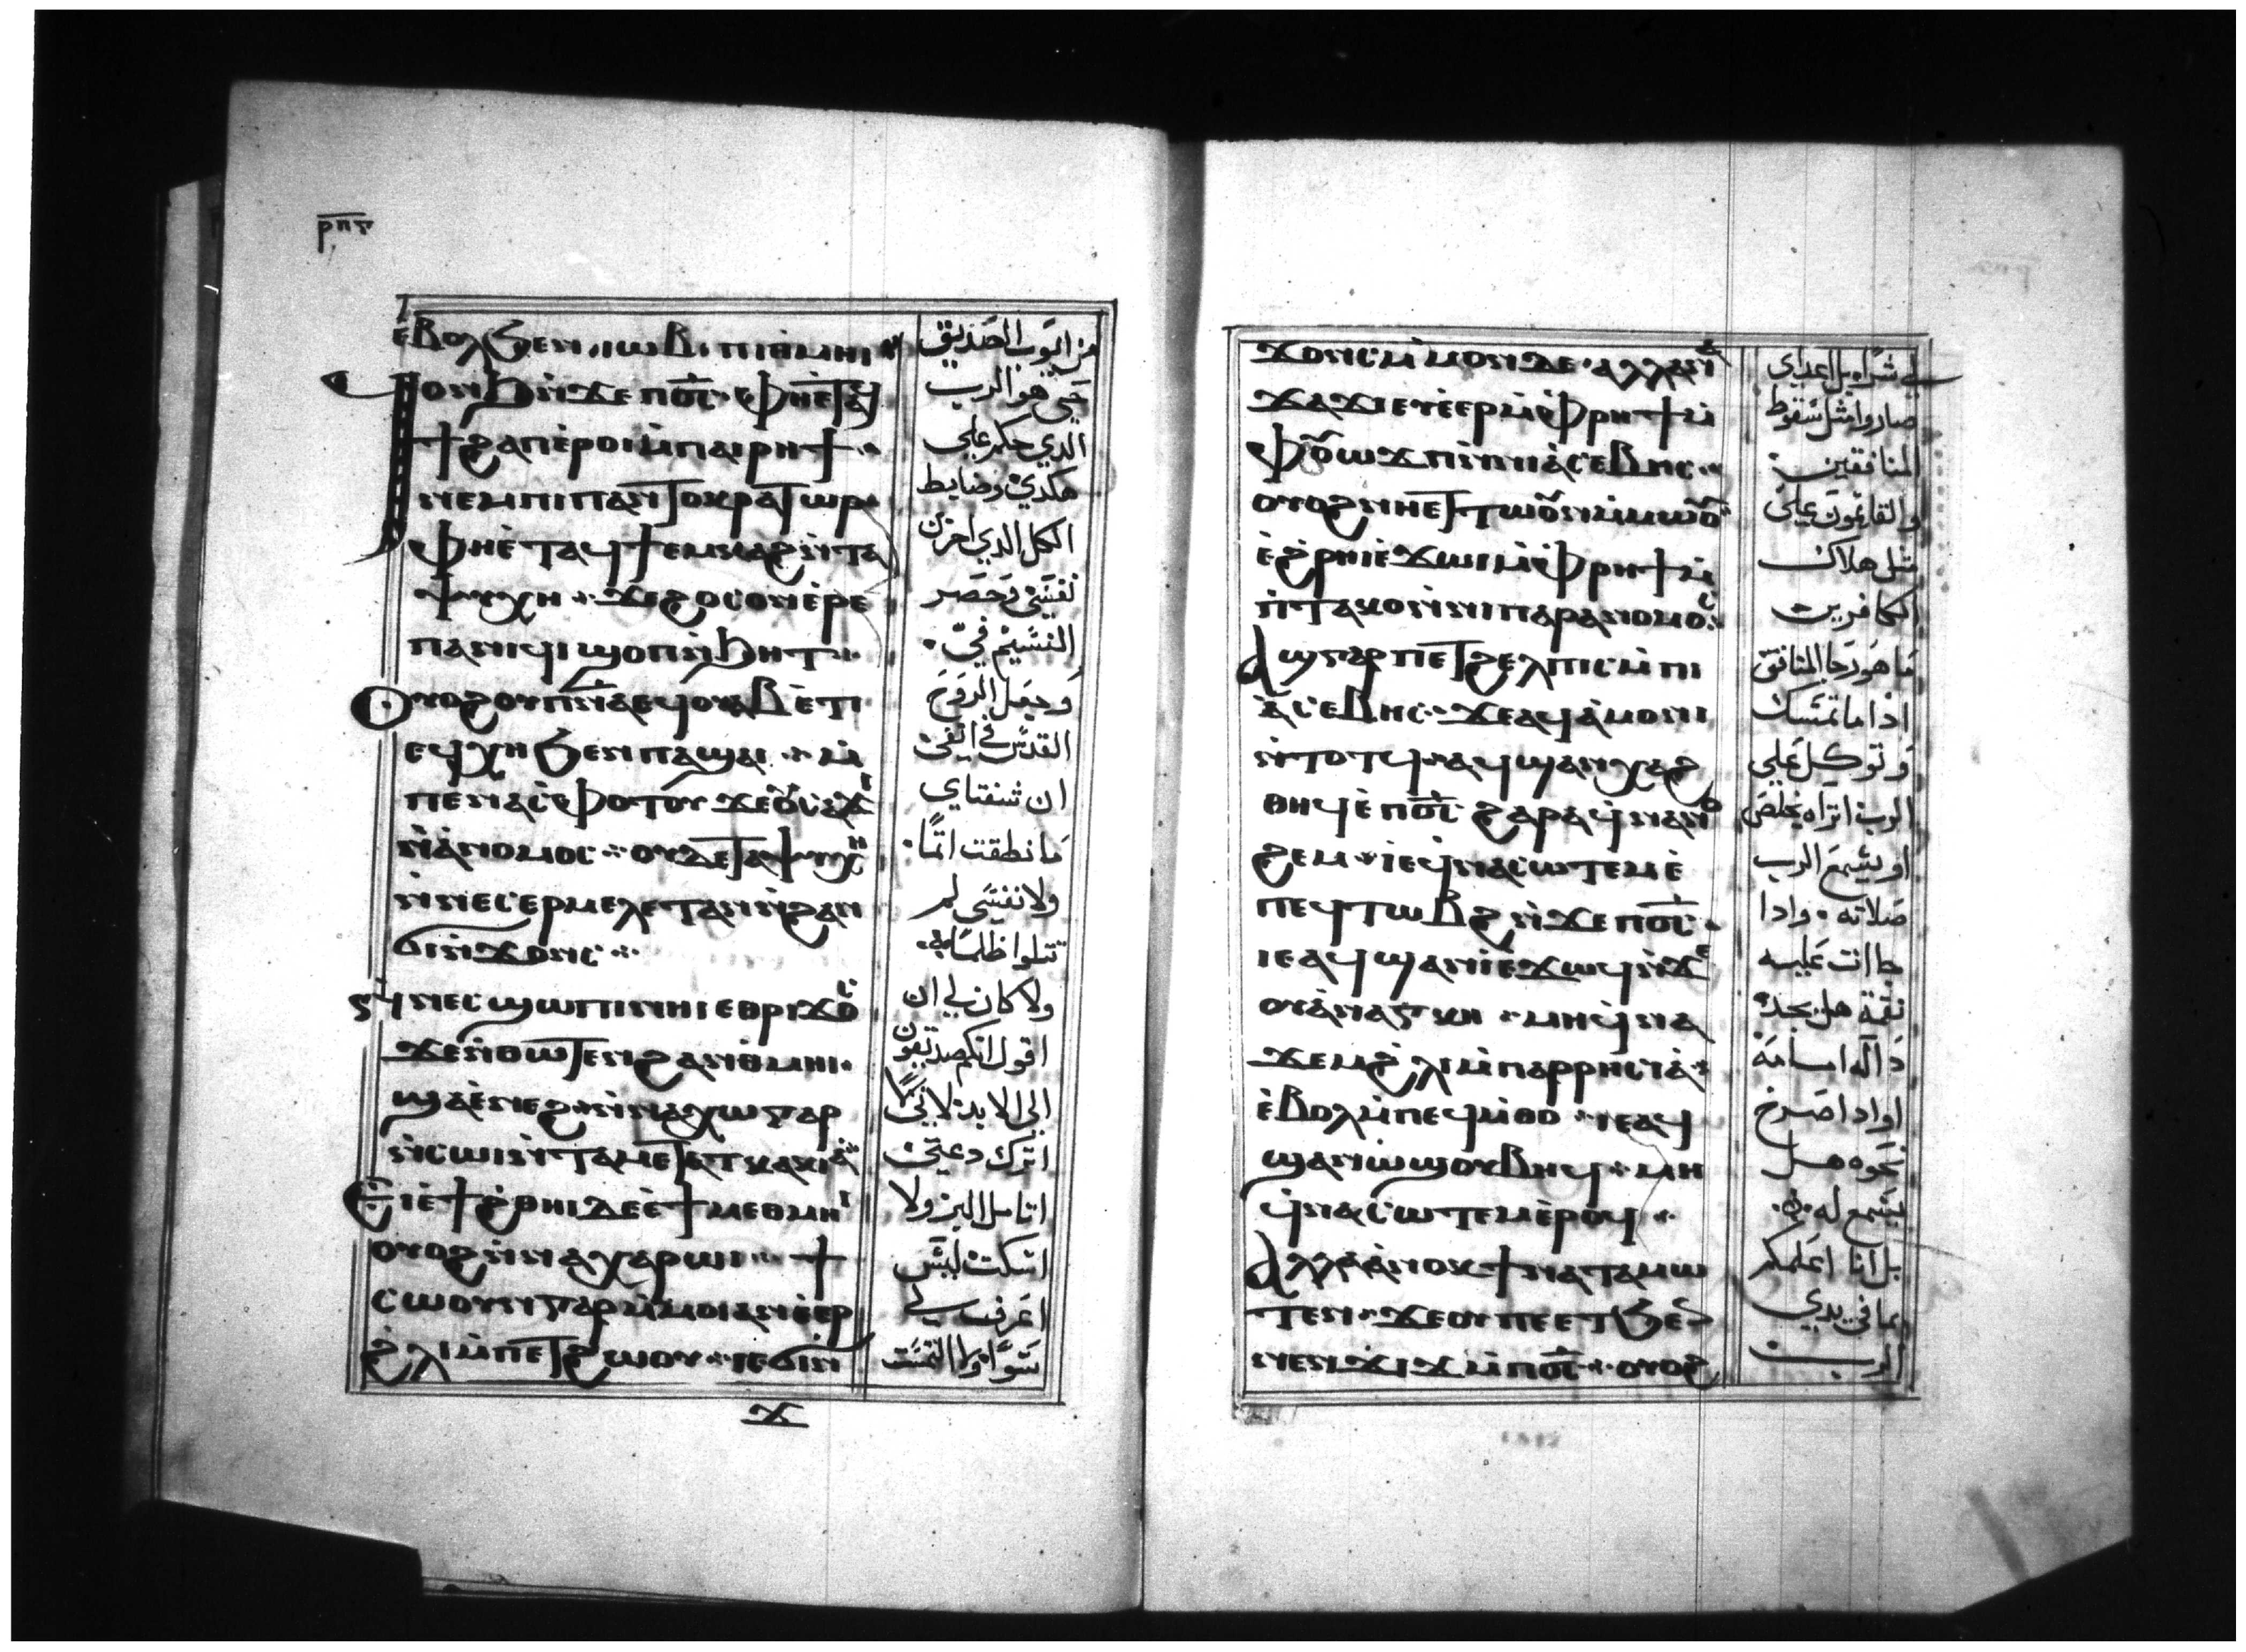 ⲣⲡⲋ
ⲉⲃⲟⲗϧⲉⲛⲓⲱⲃ ⲡⲓⲑⲙⲏⲓ
ϥⲟⲛϧⲛϫⲉ ⲡⲟ̅ⲥ̅ ⲫⲏⲉⲧⲁϥ
ϯϩⲁⲡⲉⲣⲟⲓ ⲙⲡⲁⲓⲣⲏϯ
ⲛⲉⲙ ⲡⲓⲡⲁⲛⲧⲟⲕⲣⲁⲧⲱⲣ
ⲫⲏⲉⲧⲁϥϯⲉⲙⲕⲁϩ ⲛⲧⲁ
ⲯⲩⲭⲏ ϫⲉϩⲟⲥⲟⲛ ⲉⲣⲉ
ⲡⲁⲛⲓϥⲓ ϣⲟⲡ ⲛϧⲏⲧ
ⲟⲩⲟϩ ⲟⲩⲡ̅ⲛ̅ⲁ̅ ⲉϥⲟⲩⲁⲃ ⲉⲧⲓ
ⲉϥⲭⲏ ϧⲉⲛ ⲡⲁϣⲁⲓ ⲛ
ⲡⲉⲛⲁⲥⲫⲟⲧⲟⲩ ϫⲉⲟⲩⲥⲁϫⲓ
ⲛⲁⲛⲟⲙⲟⲥ ⲟⲩⲇⲉ ⲧⲁⲯⲩⲭⲏ
ⲛⲛⲉⲥⲉⲣⲙⲉⲗⲉⲧⲁⲛ ⲛϩⲁⲛ
ϭⲓⲛϫⲟⲛⲥ
ⲛⲛⲉⲥϣⲱⲡⲓ ⲛⲏⲓ ⲉⲑⲣⲓϫⲟⲥ
ϫⲉⲛⲑⲱⲧⲉⲛ ϩⲁⲛⲑⲙⲏⲓ
ϣⲁⲉⲛⲉϩ ⲛⲛⲁⲭⲱ ⲅⲁⲣ
ⲛⲥⲱⲓ ⲛⲧⲁⲙⲉⲧⲁⲧⲕⲁⲕⲓⲁ
ⲉⲓⲉϯϩⲑⲏⲓ ⲇⲉ ⲉϯⲙⲉⲑⲙⲏⲓ
ⲟⲩⲟϩ ⲛⲛⲁⲭⲁⲣⲱⲓ ϯ
ⲥⲱⲟⲩⲛ ⲅⲁⲣ ⲙⲙⲟⲓ ⲁⲛ ⲉⲉⲣ
ϩⲗⲓ ⲙⲡⲉⲧϩⲱⲟⲩ ⲓⲉϭⲓⲛ
ϫ
من ايوب الصديق
حي هو الرب
الذي حكم علي
هكذي وضابط
الكل الذي احزن
نفسي وحصر
النسيم في
وجعل الروح
القدس في انفي
ان شفتاي
ما نطقت اثما
ولا نفسي لم
تتلوا ظلما
ولا كان لي ان
اقول انكم صديقون
الي الابد لانني
اترك دعتي
اتامل البر ولا
اسكت ليس
اعرف لي
سوا ولا التمست
ϫⲟⲛⲥ ⲙⲙⲟⲛ ⲇⲉ ⲁⲗⲗⲁ ⲛⲁ
ϫⲁϫⲓ ⲉⲩⲉⲉⲣ ⲙⲫⲣⲏϯ ⲙ
ⲫⲟⲩⲱϫⲡ ⲛⲛⲓⲁⲥⲉⲃⲏⲥ
ⲟⲩⲟϩ ⲛⲏⲉⲧⲧⲱⲟⲩⲛ ⲙⲙⲱⲟⲩ
ⲉϩⲣⲏⲓ ⲉϫⲱⲓ ⲙⲫⲣⲏϯ ⲙ
ⲡⲧⲁⲕⲟ ⲛⲛⲓⲡⲁⲣⲁⲛⲟⲙⲟⲥ
ⲁϣ ⲅⲁⲣ ⲡⲉⲧϩⲉⲗⲡⲓⲥ ⲙⲡⲓ
ⲁⲥⲉⲃⲏⲥ ϫⲉⲁϥⲁⲙⲟⲛⲓ
ⲛⲧⲟⲧϥ ⲁϥϣⲁⲛⲭⲁϩ
ⲑⲏϥ ⲉⲡⲟ̅ⲥ̅ ϩⲁⲣⲁ ϥⲛⲁⲛⲟ
ϩⲉⲙ ⲓⲉ ϥⲛⲁⲥⲱⲧⲉⲙ ⲉ
ⲡⲉϥⲧⲱⲃϩ ⲛϫⲉ ⲡⲟ̅ⲥ̅
ⲓⲉ ⲁϥϣⲁⲛⲓ ⲉϫⲱϥ ⲛϫⲉ
ⲟⲩⲁⲛⲁⲅⲕⲏ ⲙⲏ ϥⲛⲁ
ϫⲉⲙ ϩⲗⲓ ⲙⲡⲁⲣⲣⲏⲥⲓⲁ
ⲉⲃⲟⲗ ⲙⲡⲉϥⲙⲑⲟ ⲓⲉ ⲁϥ
ϣⲁⲛⲱϣ ⲟⲩⲃⲏϥ ⲙⲏ
ϥⲛⲁⲥⲱⲧⲉⲙ ⲉⲣⲟϥ
ⲁⲗⲗⲁ ⲁⲛⲟⲕ ϯⲛⲁⲧⲁⲙⲱ
ⲧⲉⲛ ϫⲉⲟⲩ ⲡⲉⲉⲧϧⲉⲛ
ⲛⲉⲛϫⲓϫ ⲙⲡⲟ̅ⲥ̅ ⲟⲩⲟϩ
بل اعداي
صاروا مثل سقوط
المنافقين
والقايمون علي
مثل هلاك
الكافرين
ما هو رجا المنافق
اذا ما تمسك
وتوكل علي
الرب اتراه يخلص
او يسمع الرب
صلاته واذا
ما اتت عليه
نقمة هل يجد
دالة امامه
او اذا صرخ
نحوه هل
يسمع له
بل انا اعلمكم
بما في يدي
الرب